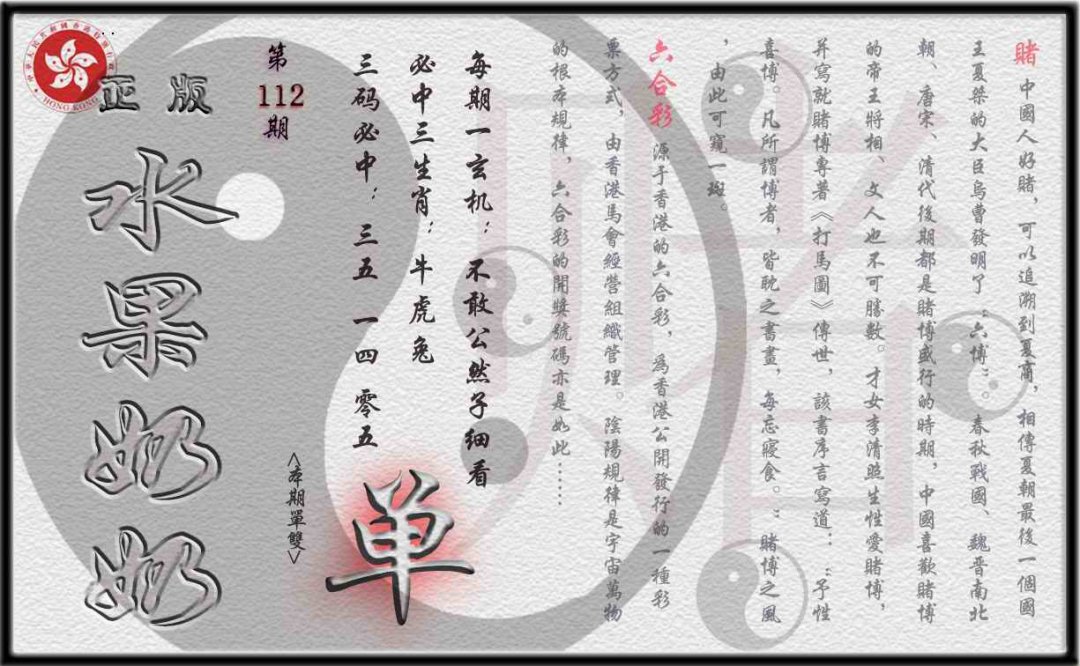 賭 中國人好賭，可以追溯到夏商，相傳夏朝最後一個國
王夏桀的大臣烏曹發明了“六博”。春秋戰國、魏晋南北
朝、唐宋、清代後期都是賭博盛行的時期，中國喜歡賭博
的帝王將相、文人也不可勝數。才女李清照生性愛賭博，
并寫就賭博專著《打馬圖》傳世，該書序言寫道：“予性
喜博。凡所謂博者，皆耽之書畫，每忘寢食。”賭博之風
，由此可窺一斑。
六合彩 源于香港的六合彩，爲香港公開發行的一種彩
票方式，由香港馬會經營組織管理。陰陽規律是宇宙萬物
的根本規律，六合彩的開獎號碼亦是如此……
每期一玄机：不敢公然子细看
必中三生肖：牛虎兔
三码必中：三五 一四 零五
单
<本期單雙>
第112期
正版
水果奶奶
HONG KONG